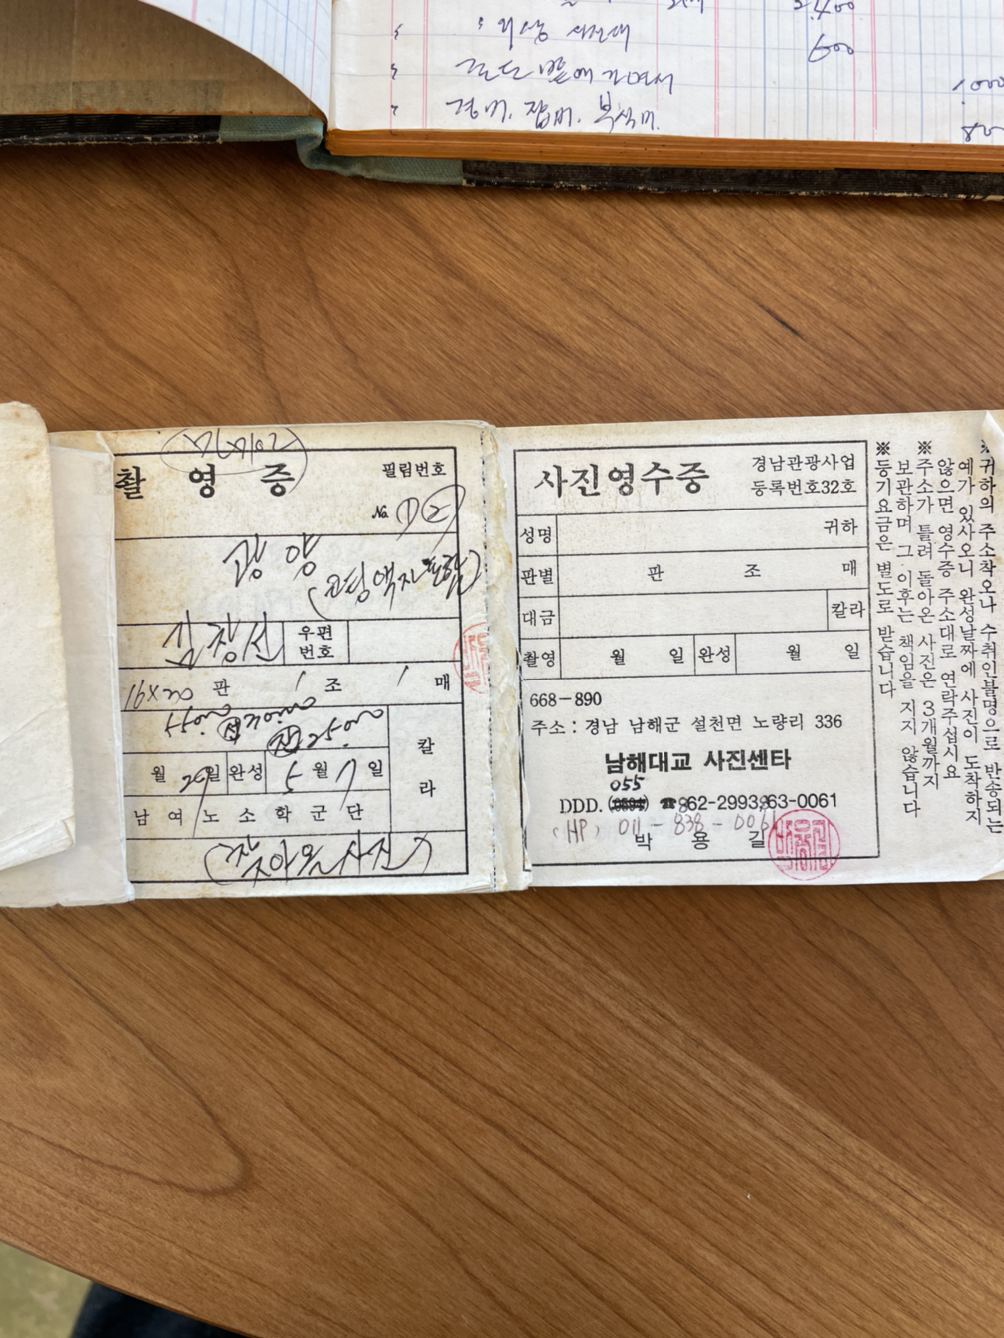 2,400
600
1,000
경비. 잡비. 부식비.
촬 영 증
필림번호
№ ① ②
광 양
코팅액자
우편
번호
16×20 판 1 조 1 매
25.00
칼
라
월 29일 완성 5 월 7 일
남 여 노 소 학 군 단
(찾아온사진)
사진영수증
경남관광사업
등록번호32호
성명 귀하
판별 판 조 매
대금 칼라
촬영 월 일 완성 월 일
668-890
주소 : 경남 남해군 설천면 노량리 336
남해대교 사진센타
055
DDD. (0594) ☎862-2993,863-0061
(HP) 011-838-0061
박 용 길
※귀하의 주소착오나 수취인불명으로 반송되는
예가 있사오니 완성날짜에 사진이 도착하지
않으면 영수증 주소대로 연락주십시요
※주소가 틀려 돌아온 사진은 3개월까지
보관하며 그 이후는 책임을 지지 않습니다
※등기요금은 별도로 받습니다